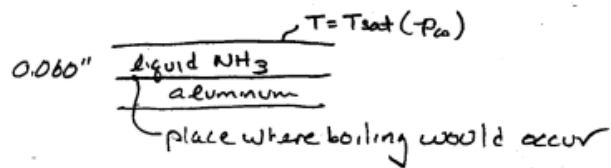 T = Tsat (P∞)
0.060"
liquid NH3
aluminum
place where boiling would occur